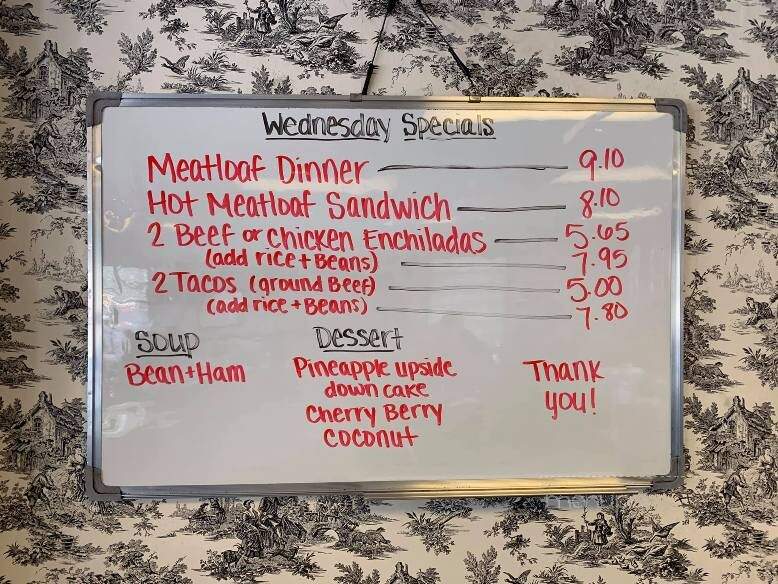 Wednesday Specials
Meatloaf Dinner 9.10
Hot Meatloaf Sandwich 8.10
2 Beef or Chicken Enchiladas 5.65
(add rice + Beans) 7.95
2 Tacos (ground Beef) 5.00
(add rice + Beans) 7.80
Soup
Bean + Ham
Dessert
Pineapple upside
down cake
Cherry Berry
coconut
Thank
you!